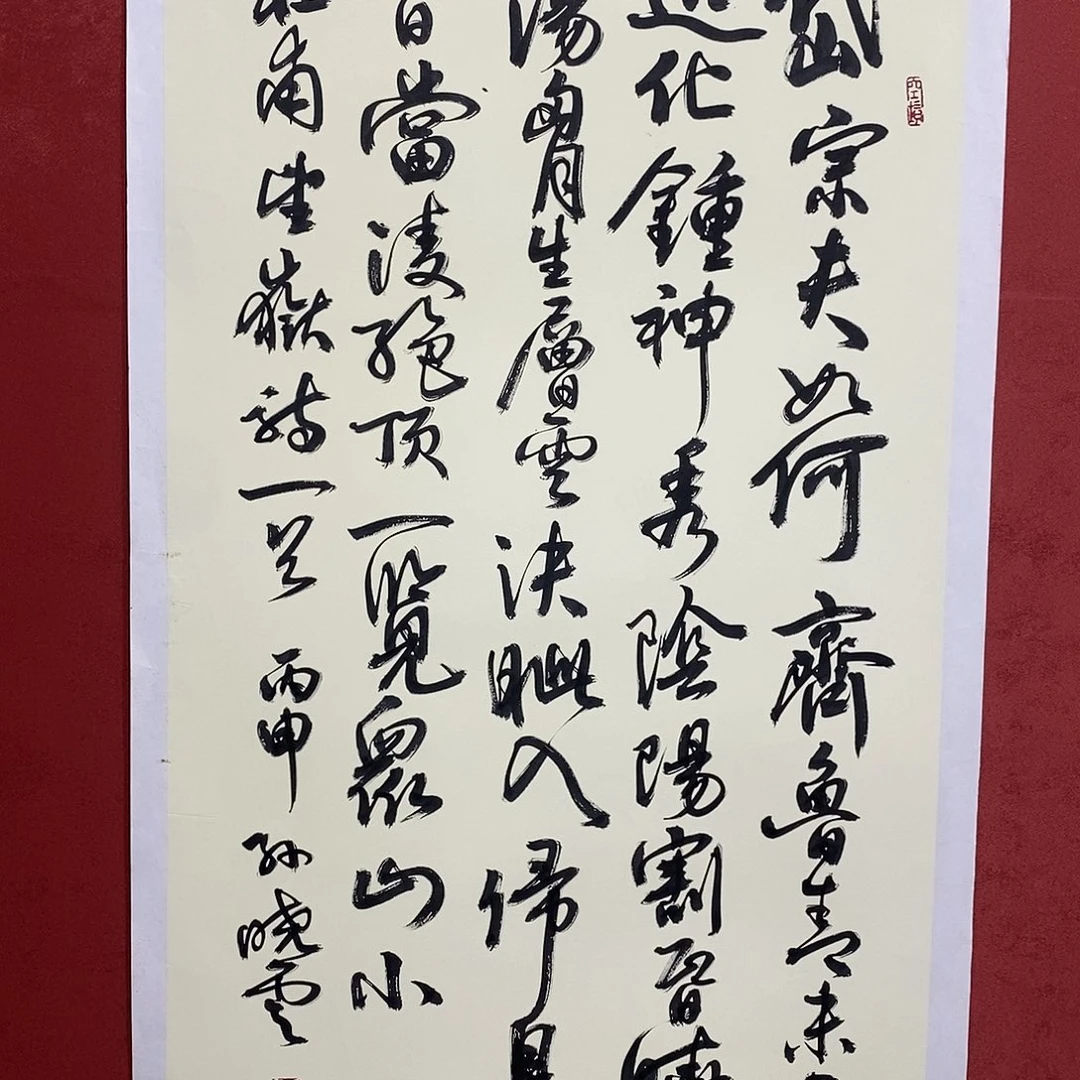 岱宗夫如何齊魯青未
造化鍾神秀陰陽割昏曉
湯胷生層雲決眦入帰鳥
日當凌絕頂一覽眾山小
杜甫望嶽詩一首 丙申 孫曉雲